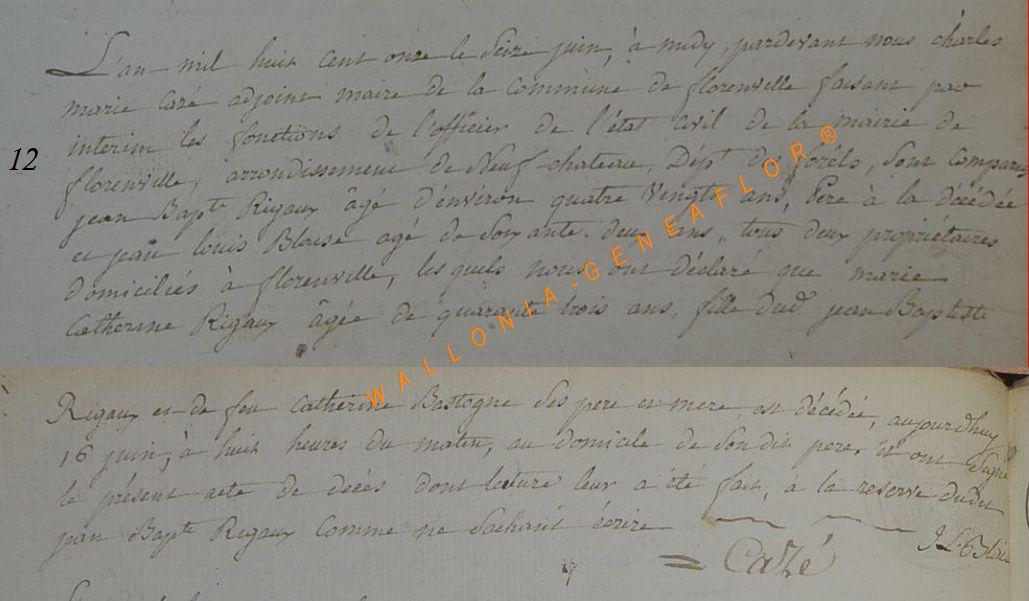 L'an mil huit cent onze le Seize juin, à midy, pardevant nous charles
marie Cazé adjoint maire de la Commune de florenville faisant par
interim les fonctions de l'officier de l'état Civil de la mairie de
12
florenville, arrondissement de Neufchateau, Dépt des forêts, Sont Comparus
jean Bapte Rigaux âgé d'environ quatre Vingts ans, Père à la décédée
et jean louis Blaise agé de Soixante-deux ans, tous deux propriétaires
domiciliés à florenville, les quels nous ont déclaré que marie
Catherine Rigaux âgée de quarante trois ans, fille dud jean Baptiste
Rigaux et de feu Catherine Bastogne Ses pere et mere est décédée, aujourdhuy
16 juin, à huit heures du matin, au domicile de Sondit pere, et ont Signé
le présent acte de décés dont lecture leur a été fait, à la reserve dudit
jean Bapte Rigaux Comme ne Sachant écrire
J L Blaise
Cazé
WALLONIA-GENEAFLOR®